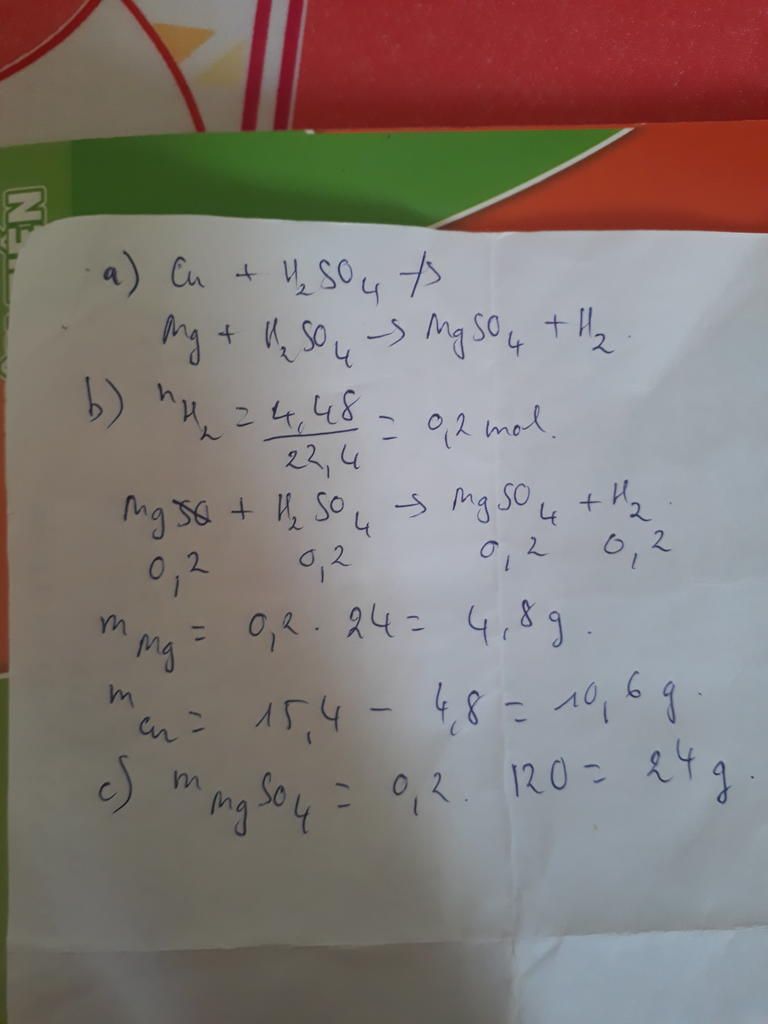 a) Cu + H₂SO₄ ↛
Mg + H₂SO₄ → MgSO₄ + H₂.
b) nH₂ = 4,48/22,4 = 0,2 mol.
Mg + H₂SO₄ → MgSO₄ + H₂.
0,2 0,2 0,2 0,2
mMg = 0,2 . 24 = 4,8g.
mCu = 15,4 - 4,8 = 10,6g.
c) mMgSO₄ = 0,2. 120 = 24g.